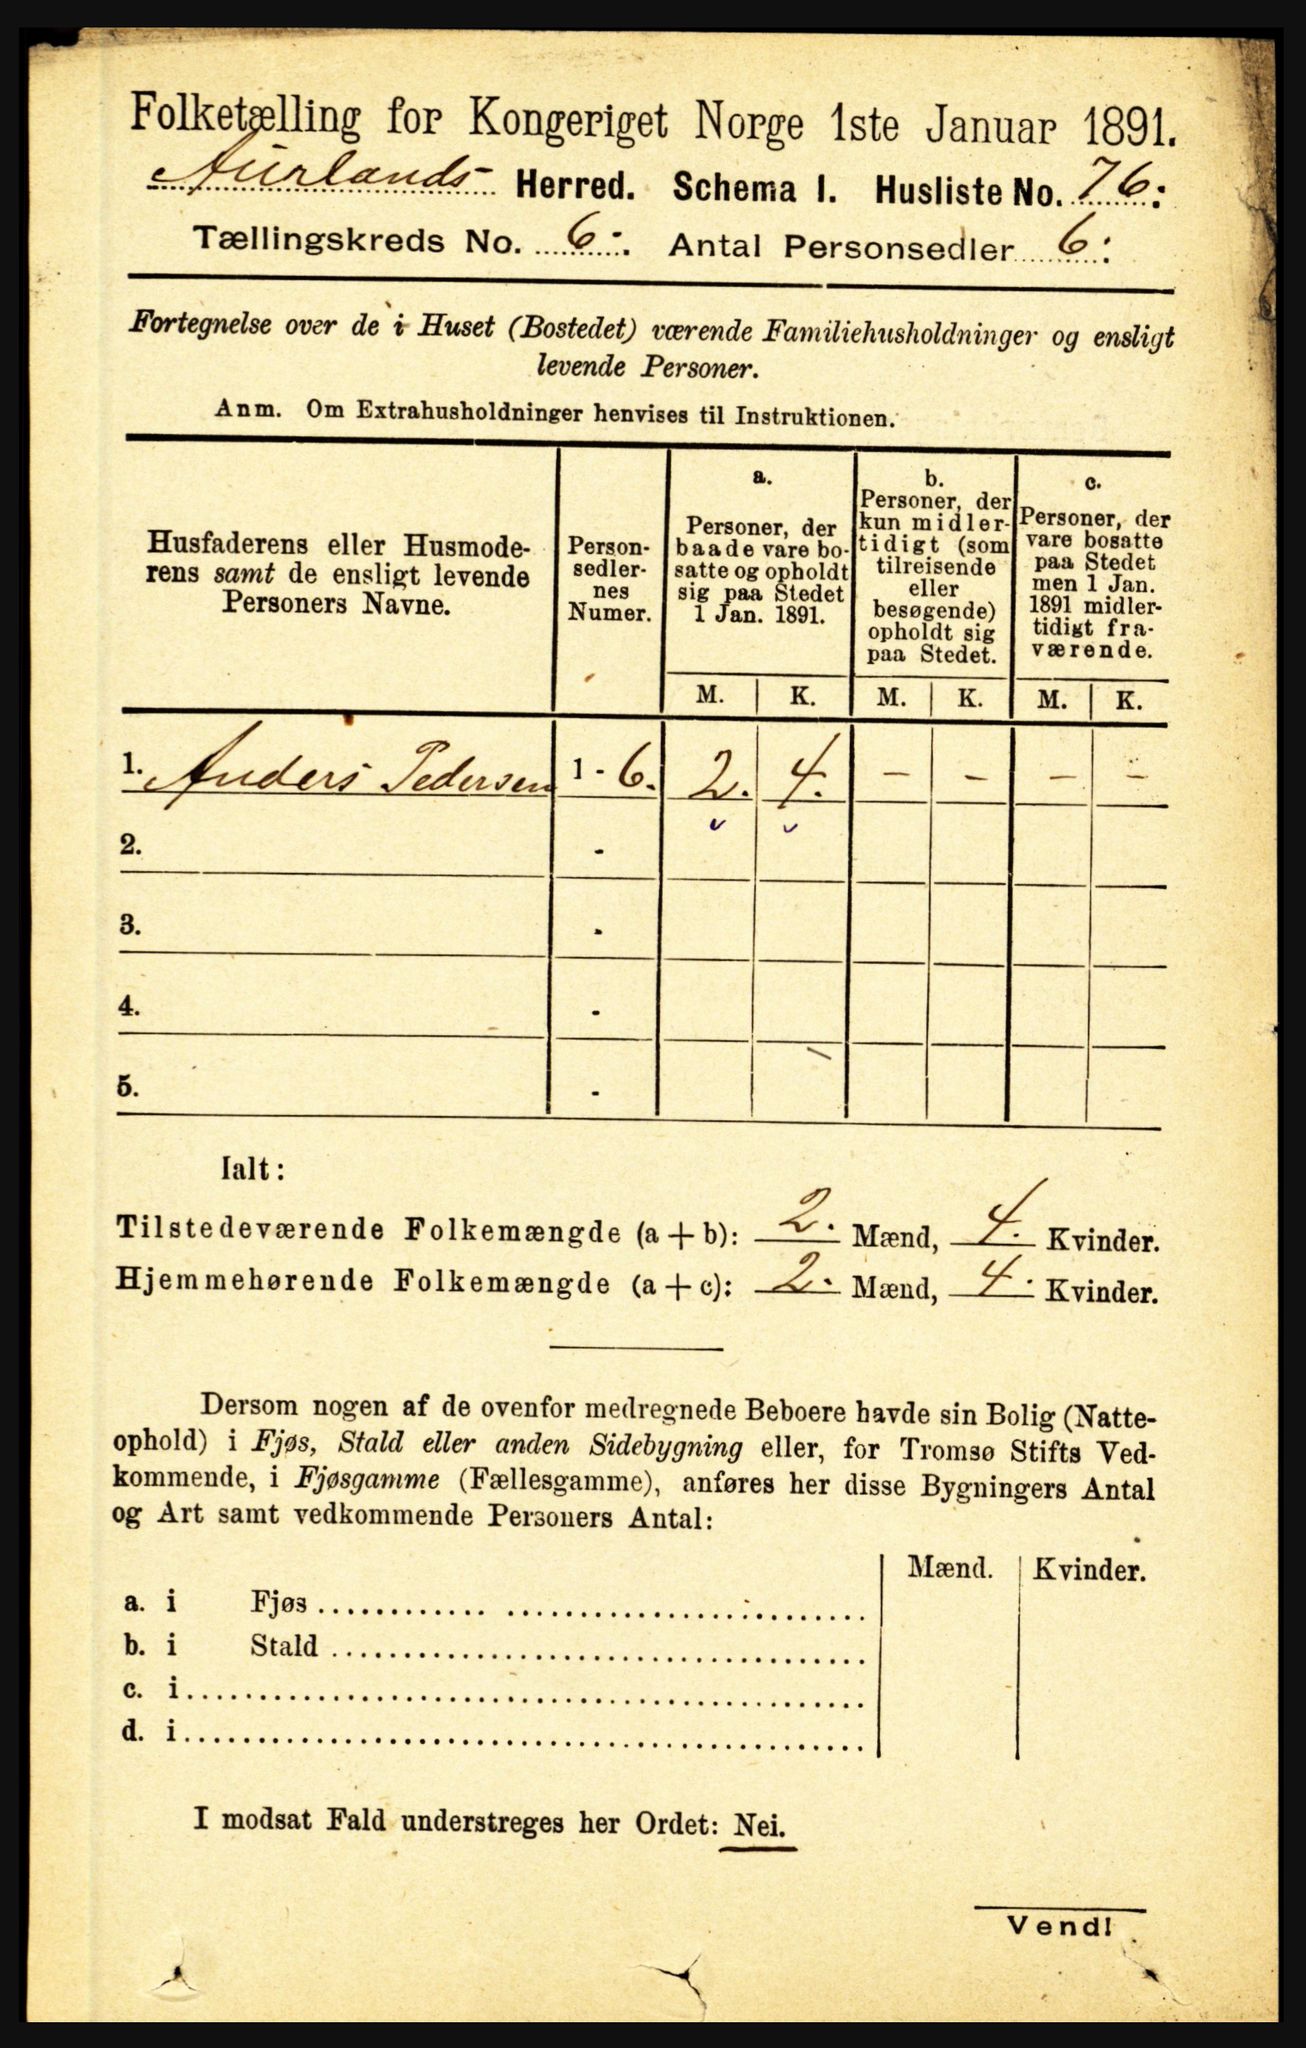 Folketælling for Kongeriget Norge 1ste Januar 1891.
Aurlands Herred. Schema I. Husliste No. 76:
Tællingskreds No. 6: Antal Personsedler 6:
Fortegnelse over de i Huset (Bostedet) værende Familiehusholdninger og ensligt
levende Personer.
Anm. Om Extrahusholdninger henvises til Instruktionen.
Husfaderens eller Husmode-
rens samt de ensligt levende
Personers Navne.
Person-
sedler-
nes
Numer.
a.
Personer, der
baade vare bo-
satte og opholdt
sig paa Stedet
1 Jan. 1891.
b.
Personer, der
kun midler-
tidigt (som
tilreisende
eller
besøgende)
opholdt sig
paa Stedet.
c.
Personer, der
vare bosatte
paa Stedet
men 1 Jan.
1891 midler-
tidigt fra-
værende.
M. K. M. K. M. K.
1. Anders Pedersen 1 - 6. 2. 4. - - - -
2. -
3. -
4. -
5. -
Ialt:
Tilstedeværende Folkemængde (a + b): 2. Mænd, 4. Kvinder.
Hjemmehørende Folkemængde (a + c): 2. Mænd, 4. Kvinder.
Dersom nogen af de ovenfor medregnede Beboere havde sin Bolig (Natte-
ophold) i Fjøs, Stald eller anden Sidebygning eller, for Tromsø Stifts Ved-
kommende, i Fjøsgamme (Fællesgamme), anføres her disse Bygningers Antal
og Art samt vedkommende Personers Antal:
Mænd. Kvinder.
a. i Fjøs
b. i Stald
c. i
d. i
I modsat Fald understreges her Ordet: Nei.
Vend!